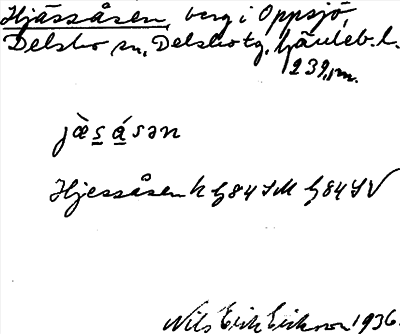 Hjässåsen, berg i Oppsjö,
Delsbo sn, Delsbo tg. Gävleb. l.
239 m.
jàsásən
Hjessåsen k G 84 SM G 84 SV
Nils Erik Eriksson 1936.